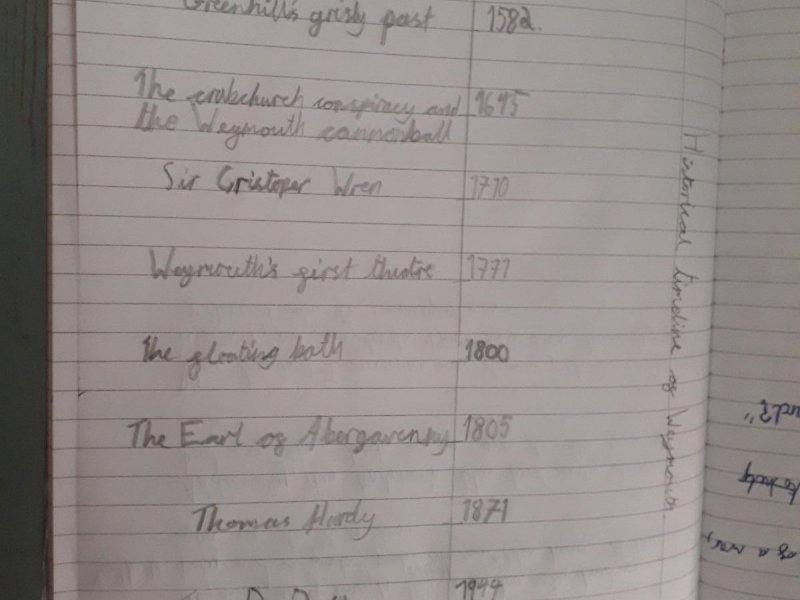 Greenhill's grisly past 1582.
The crabchurch conspiracy and 1645
the Weymouth cannonball
Sir Cristoper Wren 1710
Weymouth's first theatre 1771
The floating bath 1800
The Earl of Abergavenny 1805
Thomas Hardy 1871
1944
Historical timeline of Weymouth.
of a war,